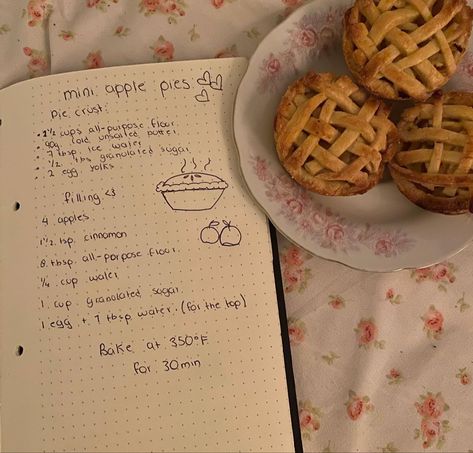 mini apple pies
pie crust:
• 2½ cups all-purpose flour
• 90g cold unsalted butter
• 7 tbsp ice water
• ½ tbs granulated sugar
• 2 egg yolks
filling <3
4 apples
1½ tsp. cinnamon
8 tbsp. all-porpose flour
¼ cup water
1 cup granulated sugar
1 egg + 1 tbsp water. (for the top)
Bake at 350°F
for 30min